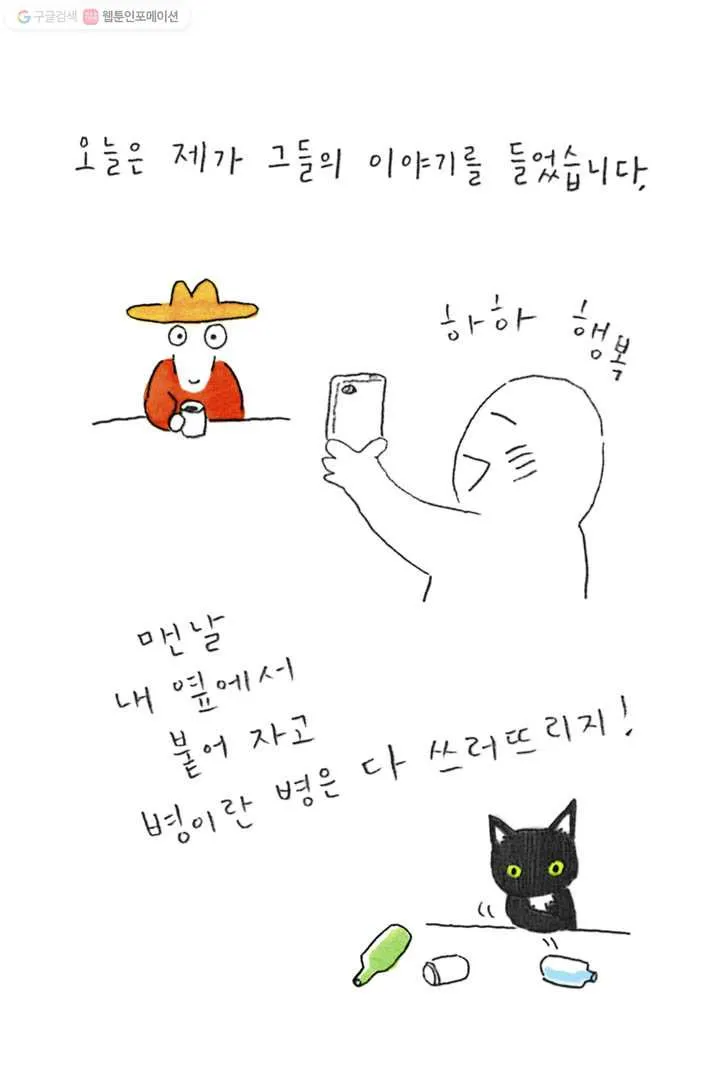 구글검색 웹툰인포메이션
오늘은 제가 그들의 이야기를 들었습니다.
하하 행복
맨날
내 옆에서
붙어 자고
병이란 병은 다 쓰러뜨리지!